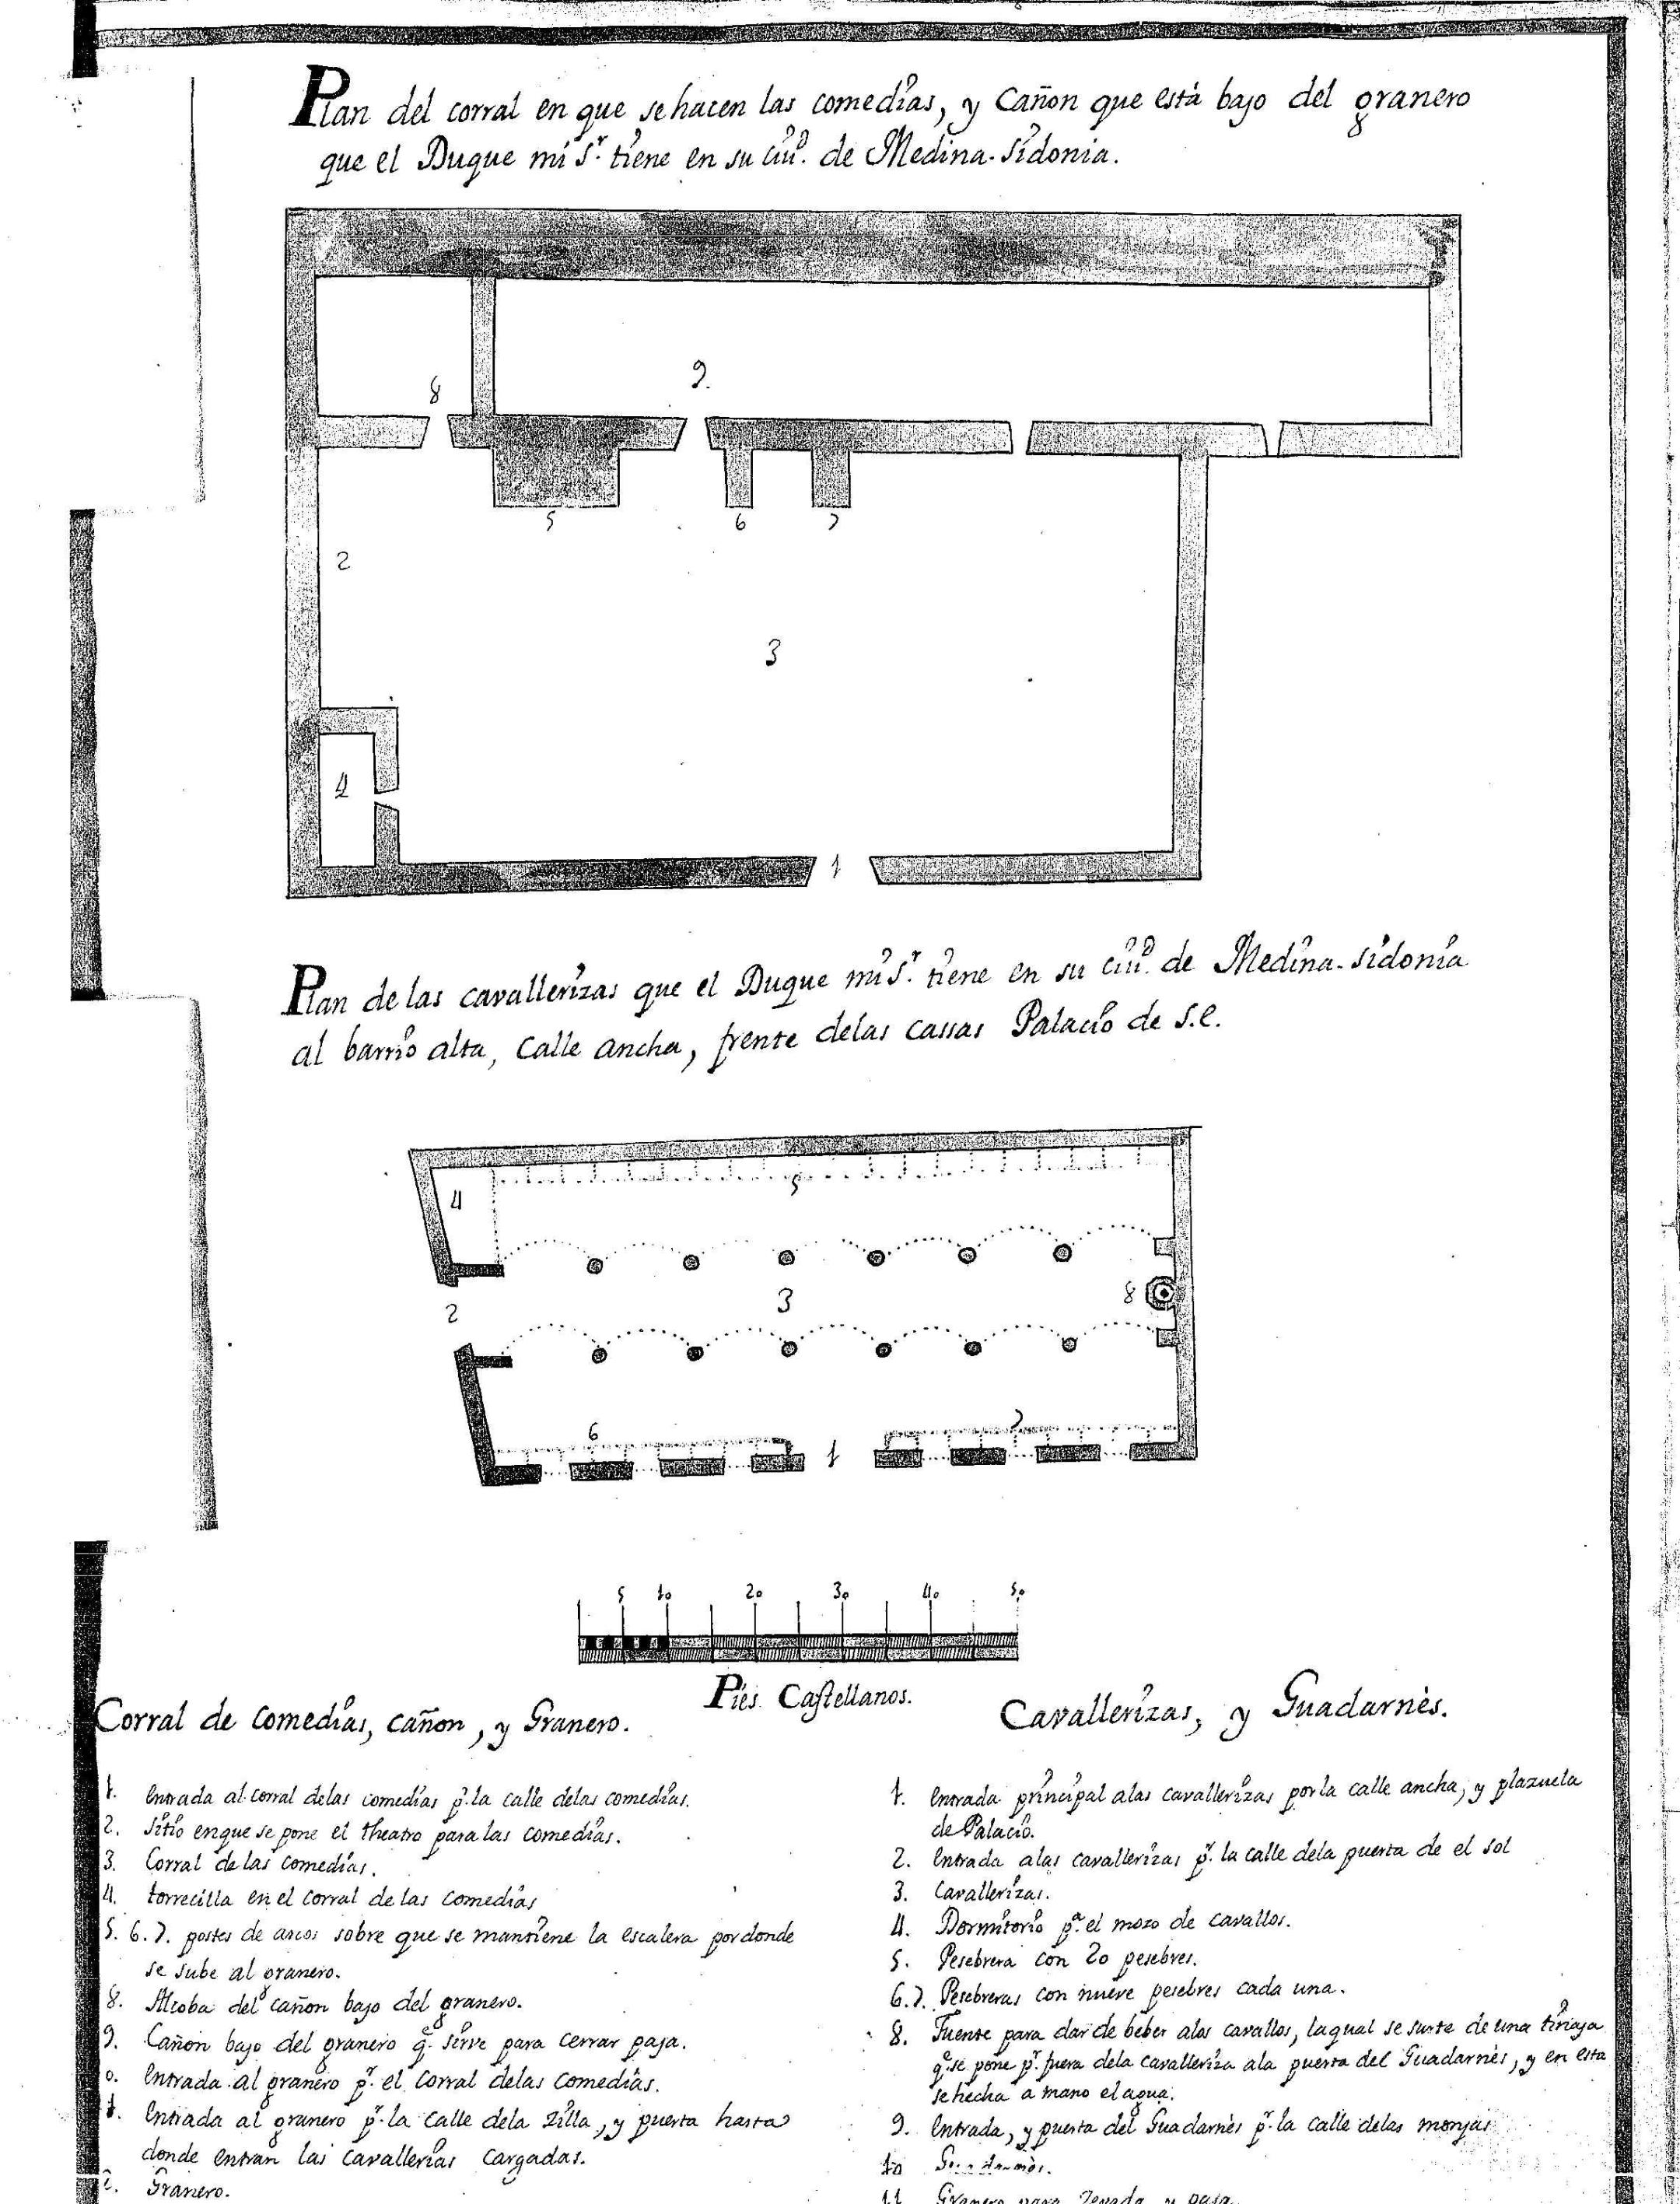 Plan del corral en que se hacen las comedias, y Cañon que está bajo del granero
que el Duque mi Sr. tiene en su ciud. de Medina-Sidonia.
8
9.
5
6
7
2
3
4
1
Plan de las cavallerizas que el Duque mi Sr. tiene en su ciud. de Medina-Sidonia
al barrio alta, Calle ancha, frente delas cassas Palacio de S.E.
5
4
2
3
8
6
7
1
5 10 20 30 40 50
Pies Castellanos.
Corral de comedias, cañon, y Granero.
1. entrada al corral delas comedias pr. la calle delas comedias.
2. Sitio enque se pone el theatro para las comedias.
3. Corral de las comedias.
4. torrecilla en el corral de las comedias
5. 6. 7. postes de arcos sobre que se mantiene la escalera pordonde
se sube al granero.
8. Alcoba del cañon bajo del granero.
9. Cañon bajo del granero qe. sirve para cerrar paja.
0. entrada al granero pr. el corral delas comedias.
1. entrada al granero pr. la calle dela zilla, y puerta hasta
donde entran las cavallerias cargadas.
2. Granero.
Cavallerizas, y Guadarnès.
1. entrada principal alas cavallerizas por la calle ancha, y plazuela
de Palacio.
2. entrada alas cavallerizas pr. la calle dela puerta de el sol
3. Cavallerizas.
4. Dormitorio pa. el mozo de cavallos.
5. Pesebrera con 20 pesebres.
6. 7. Pesebreras con nueve pesebres cada una.
8. Fuente para dar de beber alos cavallos, laqual se surte de una tinaja
qe. se pone pr. fuera dela cavalleriza ala puerta del Guadarnès, y en esta
se hecha a mano el agua.
9. entrada, y puerta del Guadarnès pr. la calle delas monjas
10 Guadarnès.
11 Granero para Zevada, y paja.